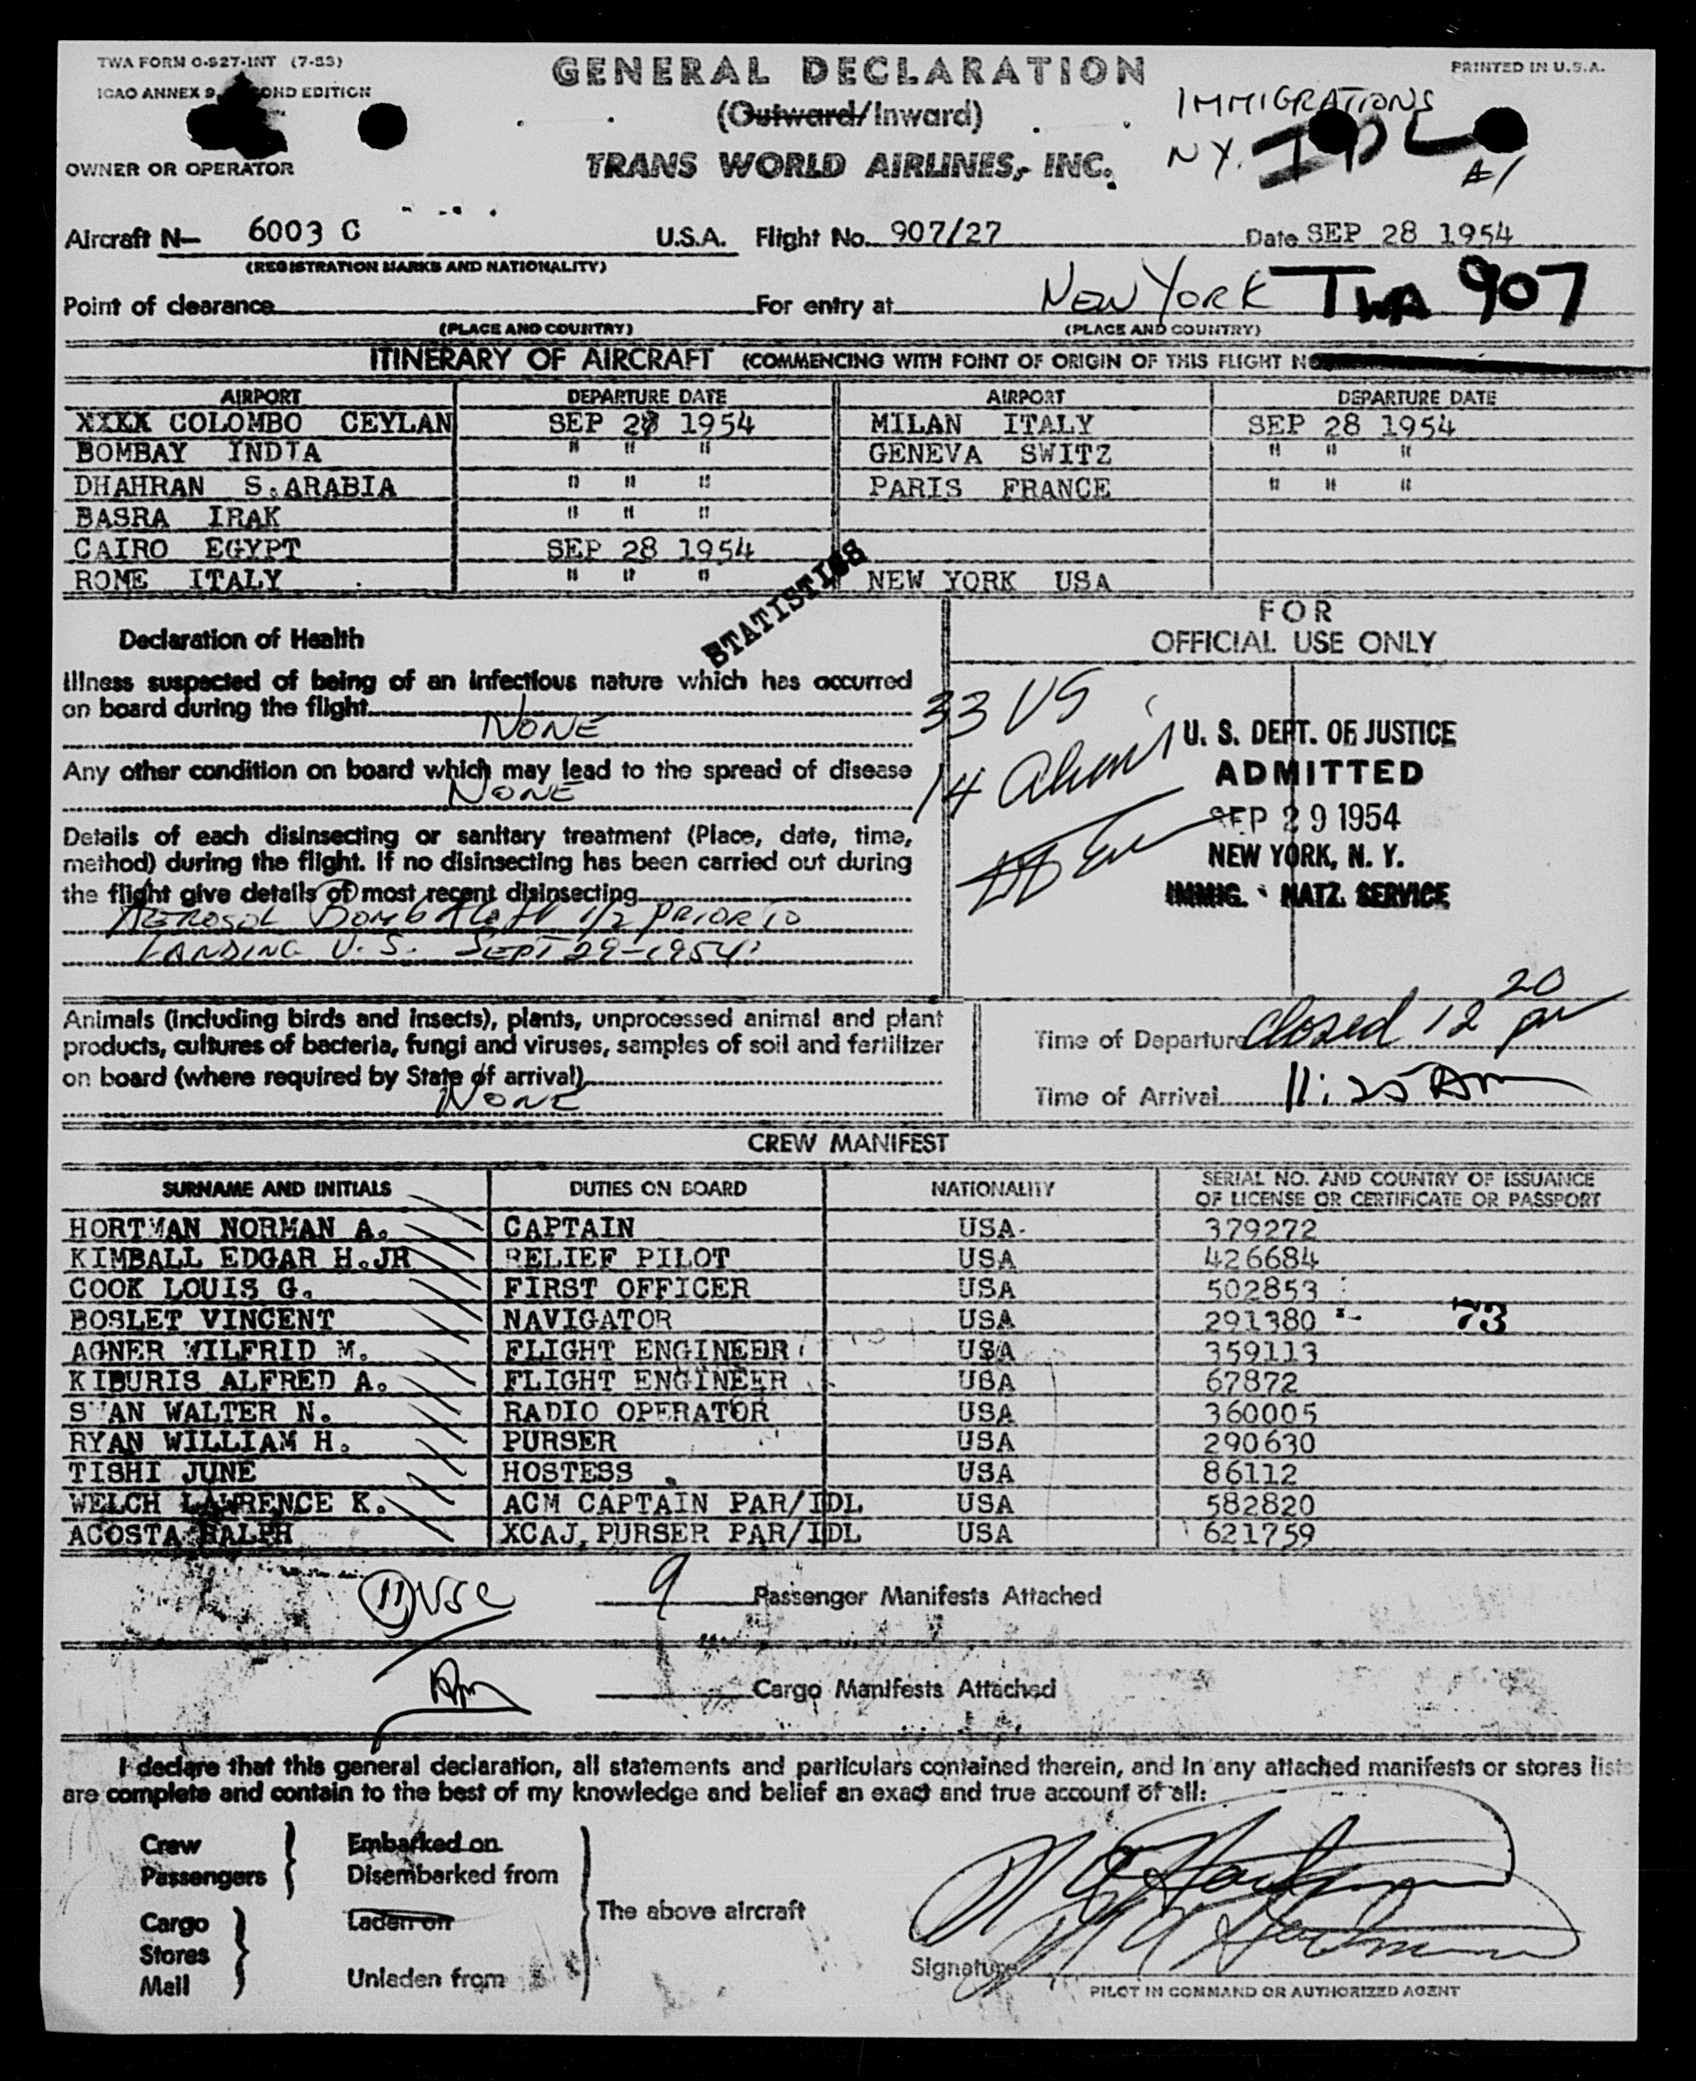 TWA FORM O-927-INT (7-53)
GENERAL DECLARATION
PRINTED IN U.S.A.
ICAO ANNEX 9, SECOND EDITION
(Outward/Inward)
IMMIGRATIONS
N.Y. IDL
A/
OWNER OR OPERATOR
TRANS WORLD AIRLINES, INC.
Aircraft N— 6003 C U.S.A. Flight No. 907/27 Date SEP 28 1954
(REGISTRATION MARKS AND NATIONALITY)
Point of clearance For entry at NEW YORK TWA 907
(PLACE AND COUNTRY) (PLACE AND COUNTRY)
ITINERARY OF AIRCRAFT (COMMENCING WITH POINT OF ORIGIN OF THIS FLIGHT NO
AIRPORT DEPARTURE DATE AIRPORT DEPARTURE DATE
XXXX COLOMBO CEYLAN SEP 28 1954 MILAN ITALY SEP 28 1954
BOMBAY INDIA " " " GENEVA SWITZ " " "
DHAHRAN S.ARABIA " " " PARIS FRANCE " " "
BASRA IRAK " " "
CAIRO EGYPT SEP 28 1954
ROME ITALY " " " NEW YORK USA
STATISTICS
FOR
OFFICIAL USE ONLY
Declaration of Health
Illness suspected of being of an infectious nature which has occurred
on board during the flight
NONE
33 US
14 Aliens
Any other condition on board which may lead to the spread of disease
NONE
Details of each disinsecting or sanitary treatment (Place, date, time,
method) during the flight. If no disinsecting has been carried out during
the flight give details of most recent disinsecting
AEROSOL BOMB 1/2 PRIOR TO
LANDING U.S. SEPT 29-1954
U. S. DEPT. OF JUSTICE
ADMITTED
SEP 29 1954
NEW YORK, N. Y.
IMMIG. NATZ. SERVICE
Animals (including birds and insects), plants, unprocessed animal and plant
products, cultures of bacteria, fungi and viruses, samples of soil and fertilizer
on board (where required by State of arrival)
NONE
Time of Departure closed 12 20 pm
Time of Arrival 11:25 Am
CREW MANIFEST
SURNAME AND INITIALS DUTIES ON BOARD NATIONALITY SERIAL NO. AND COUNTRY OF ISSUANCE
OF LICENSE OR CERTIFICATE OR PASSPORT
HORTMAN NORMAN A. CAPTAIN USA 379272
KIMBALL EDGAR H.JR RELIEF PILOT USA 426684
COOK LOUIS G. FIRST OFFICER USA 502853
BOSLET VINCENT NAVIGATOR USA 291380 73
AGNER WILFRID M. FLIGHT ENGINEER USA 359113
KIBURIS ALFRED A. FLIGHT ENGINEER USA 67872
SWAN WALTER N. RADIO OPERATOR USA 360005
RYAN WILLIAM H. PURSER USA 290630
TISHI JUNE HOSTESS USA 86112
WELCH LAWRENCE K. ACM CAPTAIN PAR/IDL USA 582820
ACOSTA RALPH XCAJ.PURSER PAR/IDL USA 621759
11 USC
9 Passenger Manifests Attached
Cargo Manifests Attached
I declare that this general declaration, all statements and particulars contained therein, and in any attached manifests or stores lists
are complete and contain to the best of my knowledge and belief an exact and true account of all:
Crew
Passengers
Embarked on
Disembarked from
Cargo
Stores
Mail
Laden on
Unladen from
The above aircraft
N A Hortman
N A Hortman
Signature
PILOT IN COMMAND OR AUTHORIZED AGENT